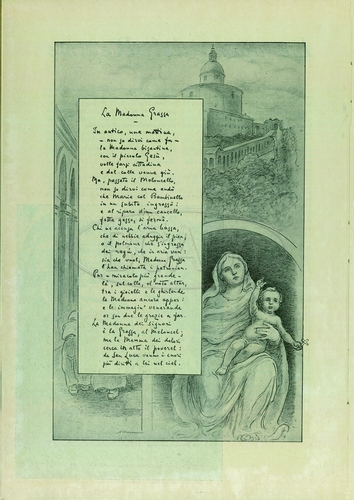 La Madonna Grassa
In antico, una mattina,
– non so dirvi come fu –
la Madonna bizantina,
con il piccolo Gesù,
volle farsi cittadina
e dal colle venne giù.
Ma, passato il Meloncello,
non so dirvi come andò
che Maria col Bambinello
in un subito ingrossò:
e al riparo d'un cancello,
fatta grassa, si fermò.
Chi ne accusa l'aria bassa,
che di nebbie adugia il pian,
o il polmone che s'ingrassa
dei ragù, che in aria van:
sia che vuol, Madonna Grassa
l'han chiamata i petronian.
Poi – miracolo più grande –
là, sul colle, al noto altar,
tra i gioielli e le ghirlande
la Madonna ancora appar:
e le immagin' venerande
or son due le grazie a far.
La Madonna dei signori
è la Grassa, al Meloncel;
ma la Mamma dei dolori
cerca in alto il poverel:
da San Luca vanno i cuori
più diritti a lei nel ciel.